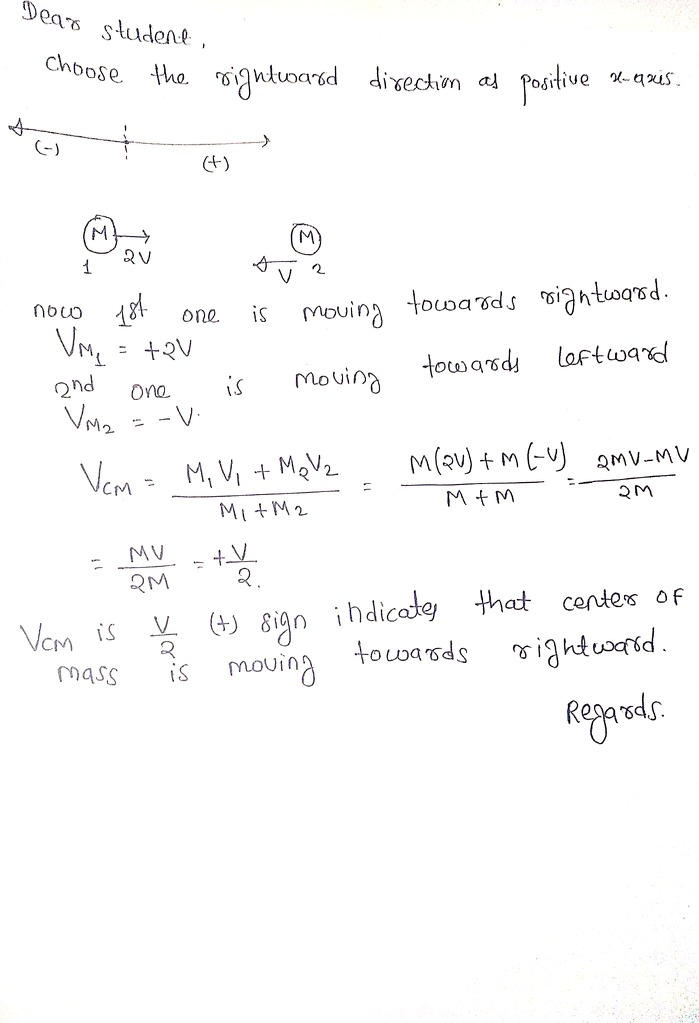 Dear student,
Choose the rightward direction as positive x-axis.
(-) (+)
M M
1 2V V 2
now 1st one is moving towards rightward.
V_M₁ = +2V
2nd one is moving towards leftward
V_M₂ = -V.
V_CM = M₁V₁ + M₂V₂ / M₁ + M₂ = M(2V) + M(-V) / M + M = 2MV-MV / 2M
= MV / 2M = +V / 2.
V_CM is V/2 (+) sign indicates that center of
mass is moving towards rightward.
Regards.